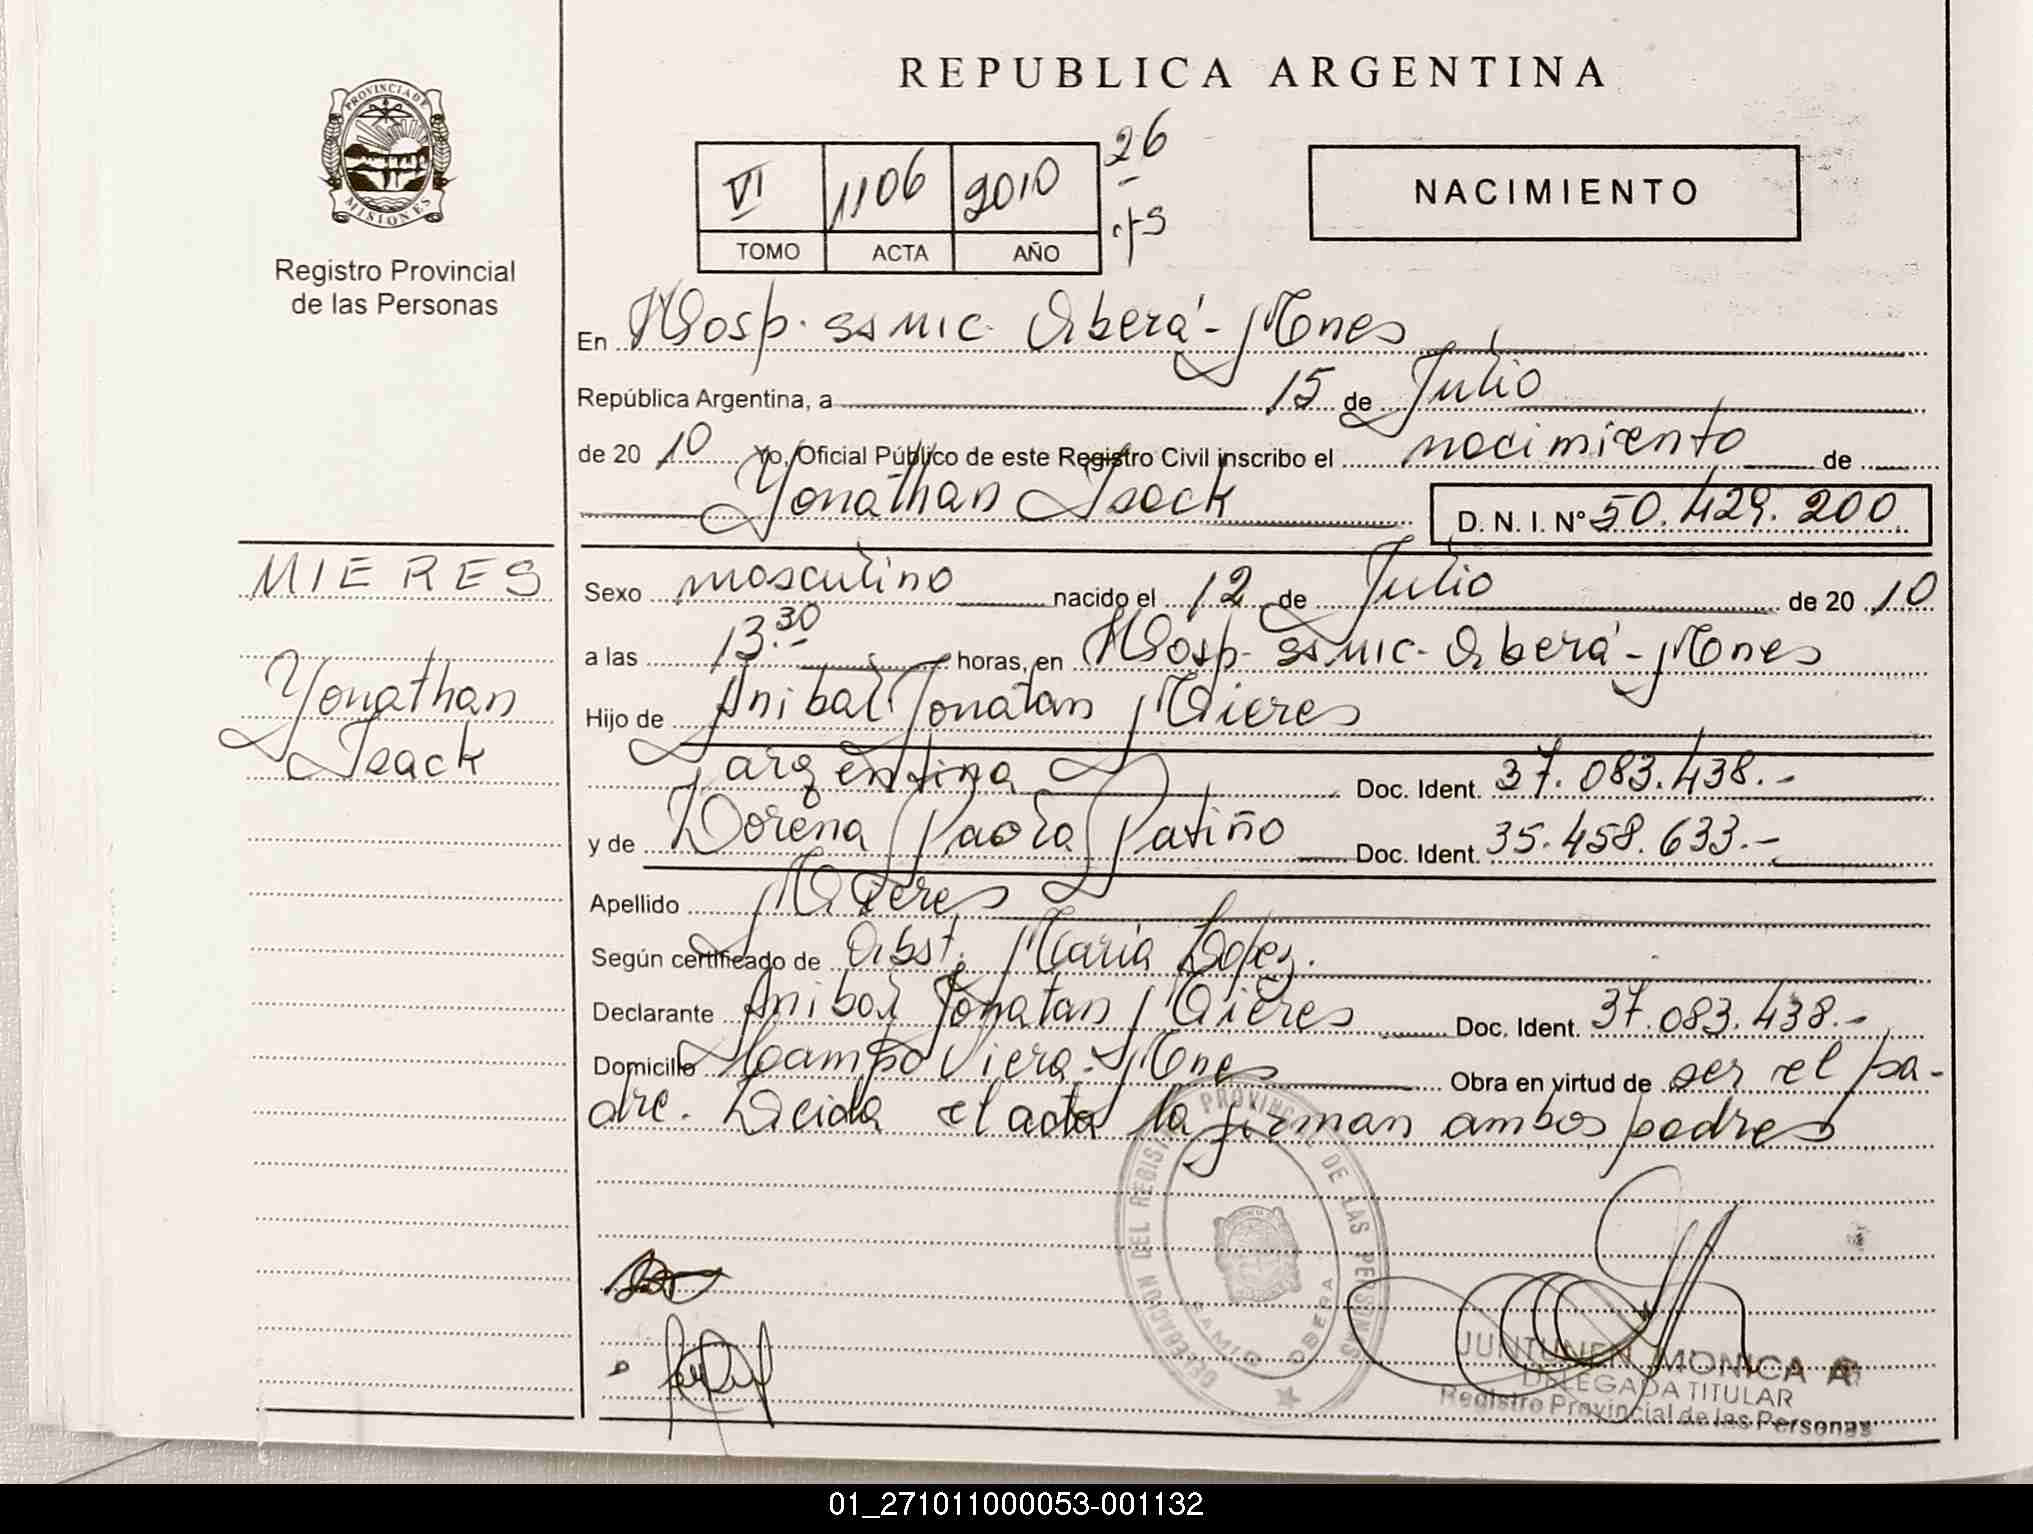 REPUBLICA ARGENTINA
PROVINCIA DE MISIONES
Registro Provincial
de las Personas
VI 1106 2010 26
TOMO ACTA AÑO
NACIMIENTO
En Hosp. SSMIC. Oberá - Mnes
República Argentina, a 15 de Julio
de 20 10 Yo, Oficial Público de este Registro Civil inscribo el nacimiento de
Yonathan Isack D. N. I. Nº 50.429.200
MIERES
Yonathan
Isack
Sexo masculino nacido el 12 de Julio de 20 10
a las 13.30 horas, en Hosp. SSMIC. Oberá - Mnes
Hijo de Anibal Jonatan Mieres
argentina Doc. Ident. 37.083.438.-
y de Lorena Paola Patiño Doc. Ident. 35.458.633.-
Apellido Mieres
Según certificado de Obst. Maria Lopez.
Declarante Anibal Jonatan Mieres Doc. Ident. 37.083.438.-
Domicilio Campo Viera - Mnes Obra en virtud de ser el pa-
dre. Leida el acta la firman ambos padres
DELEGACION DEL REGISTRO PROVINCIAL DE LAS PERSONAS
OBERA
JUNTUNEN MONICA A
DELEGADA TITULAR
Registro Provincial de las Personas
01_271011000053-001132